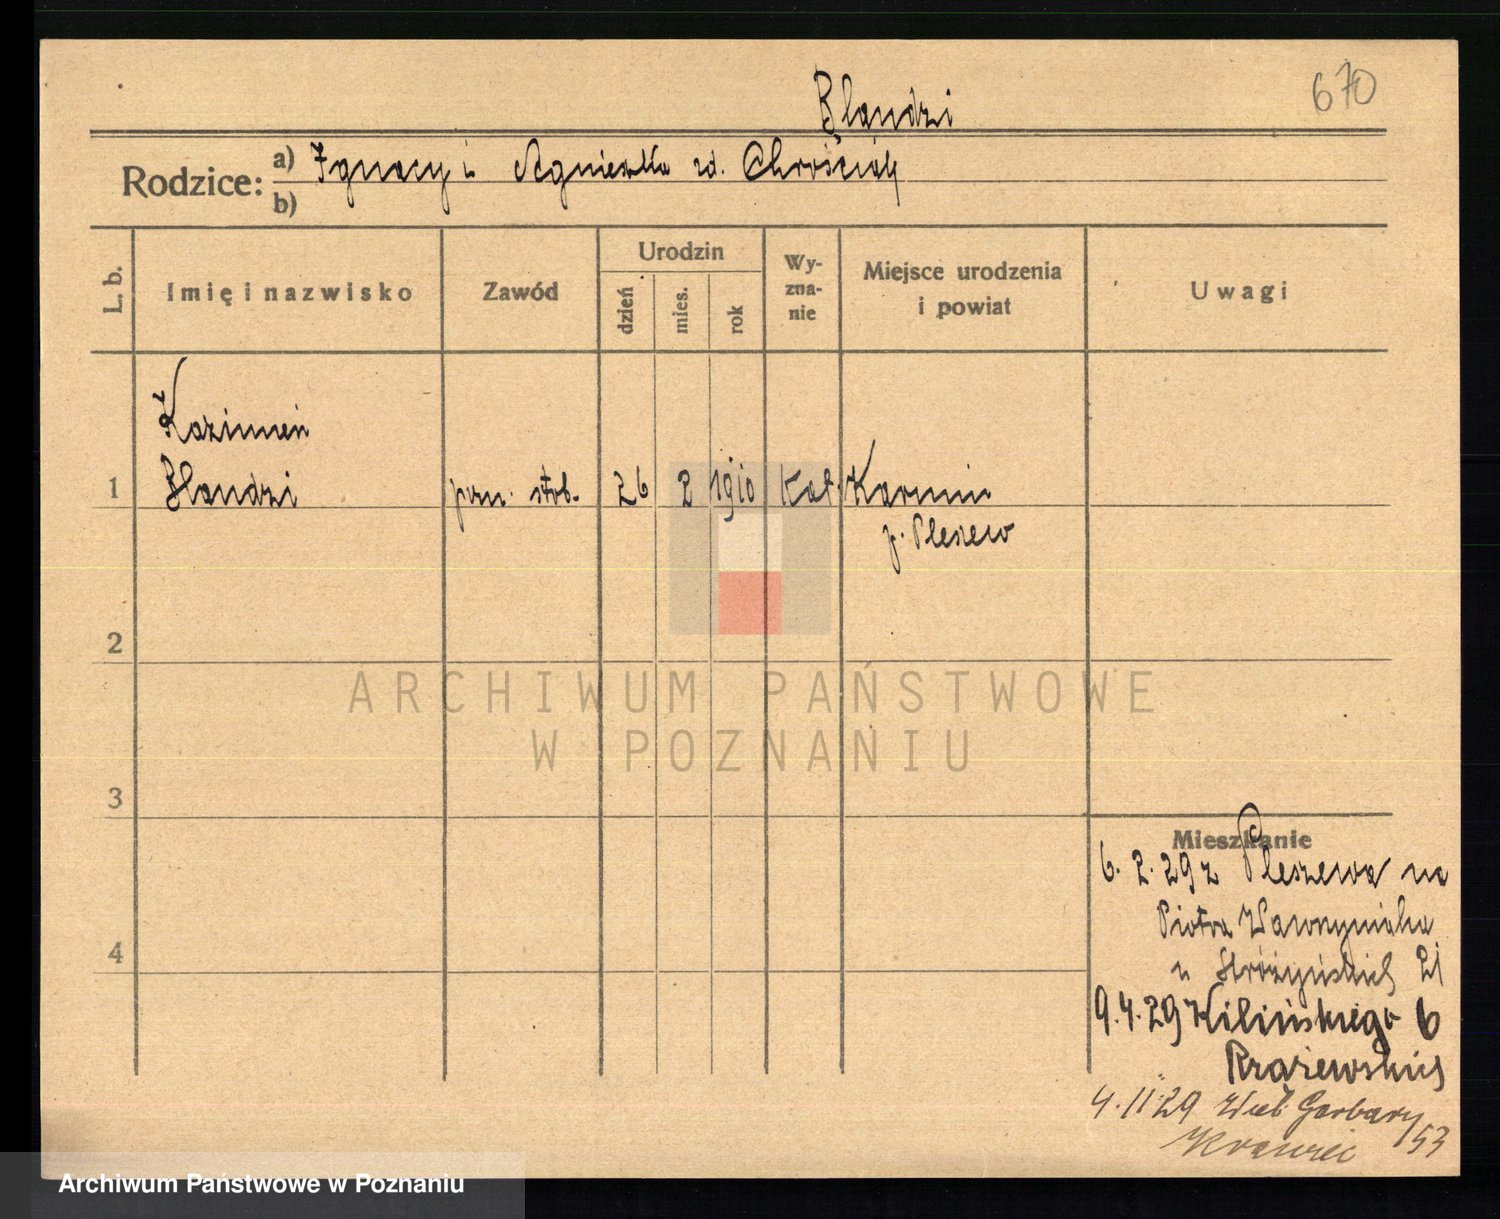 670
Blandzi
Rodzice: a) Ignacy i Agnieszka zd. Chrościak
b)
L. b. Imię i nazwisko Zawód Urodzin dzień mies. rok Wyznanie Miejsce urodzenia i powiat Uwagi
Kazimierz
1 Blandzi pom. stol. 26 2 1910 Kat. Karmin
p. Pleszew
2
ARCHIWUM PAŃSTWOWE
W POZNANIU
3
Mieszkanie
6. 2. 29 z Pleszewa na
Piotra Wawrzyniaka
u 21
4
9. 4. 29 Kilińskiego 6
4. 11. 29 Wiel. Garbary 53
Krawiec
Archiwum Państwowe w Poznaniu